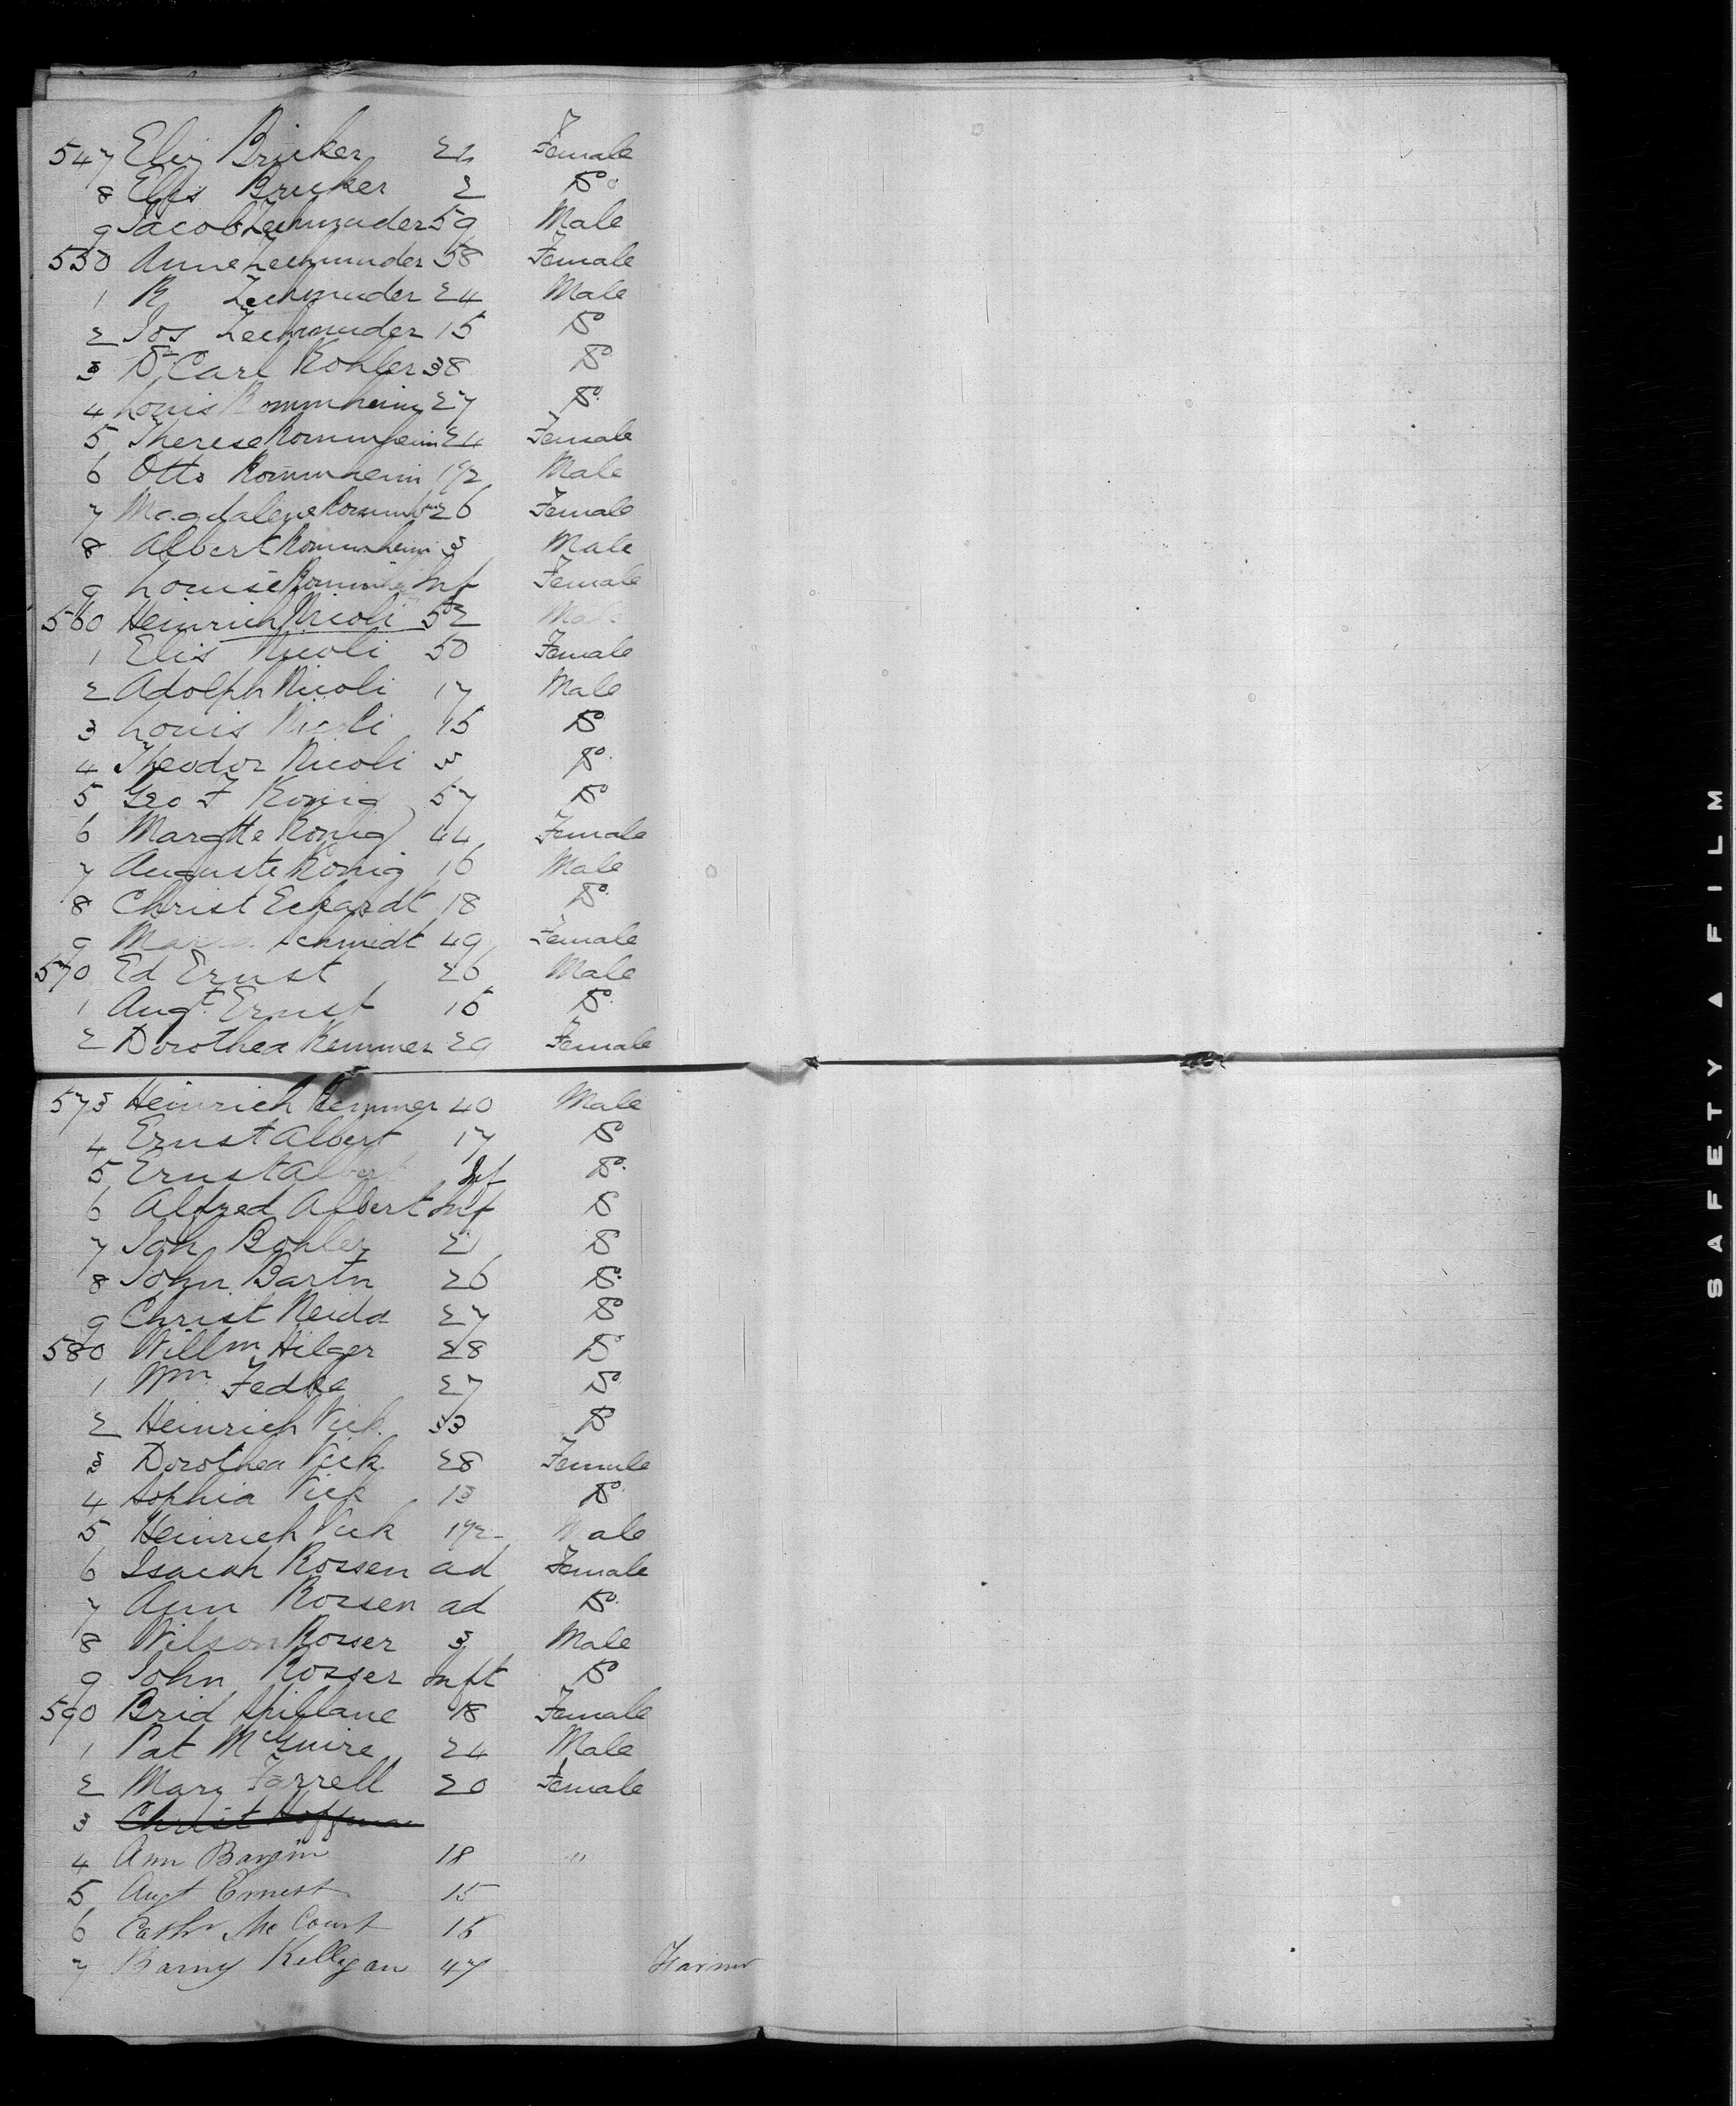 547 Elis Bricker 22 Female
8 Elis Bricker 2 Do
9 Jacob Zechmuder 59 Male
550 Anne Zechmuder 58 Female
1 R Zechmuder 24 Male
2 Jos Zechmuder 15 Do
3 Dr Carl Kohler 38 Do
4 Louis Rommheim 27 Do
5 Therese Rommheim 24 Female
6 Otto Rommheim 1½ Male
7 Magdalene Rommheim 26 Female
8 Albert Rommheim 3 Male
9 Louise Rommheim Inf Female
560 Heinrich Nicoli 52 Male
1 Elis Nicoli 50 Female
2 Adolph Nicoli 17 Male
3 Louis Nicoli 15 Do
4 Theodor Nicoli 5 Do
5 Geo F Konig 57 Do
6 Margtte Konig 44 Female
7 Auguste Konig 16 Male
8 Christ Eckardt 18 Do
9 Maria Schmidt 49 Female
570 Ed Ernst 26 Male
1 Augt. Ernst 15 Do
2 Dorothea Kemmer 29 Female
573 Heinrich Kemmer 40 Male
4 Ernst Albert 17 Do
5 Ernst Albert Inf Do
6 Alfred Albert Inf Do
7 Joh Bohler Do
8 John Barth 26 Do
9 Christ Neida 27 Do
580 Willm Hilger 28 Do
1 Wm Fedke 27 Do
2 Heinrich Vick 33 Do
3 Dorothea Vick 28 Female
4 Sophia Vick 13 Do
5 Heinrich Vick 1½ Male
6 Isaiah Rossen ad Female
7 Ann Rossen ad Do
8 Wilson Rosser 3 Male
9 John Rosser Inft Do
590 Brid Spillane 18 Female
1 Pat McGuire 24 Male
2 Mary Farrell 20 Female
3 Christ Hoffman
4 Ann 18 "
5 Augt Ernest 15
6 Cathr McCourt 15
7 Barny Kelligan 47 Farmer
SAFETY ▲ FILM